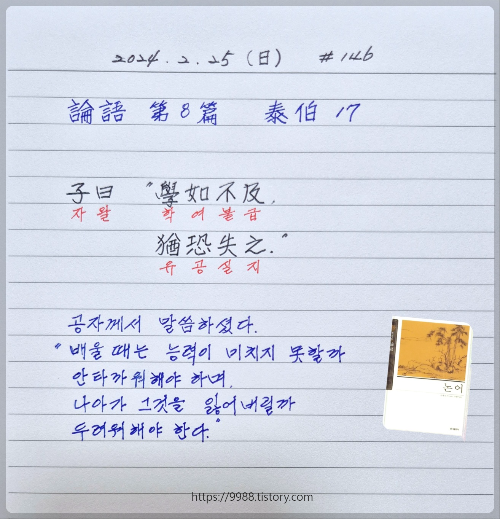 2024.2.25 (日) #146
論語 第8篇 泰伯 17
子曰 "學如不及,
자왈 학여불급
猶恐失之."
유공실지
공자께서 말씀하셨다.
"배울 때는 능력이 미치지 못할까
안타까워해야 하며,
나아가 그것을 잃어버릴까
두려워해야 한다."
논어
https://9988.tistory.com